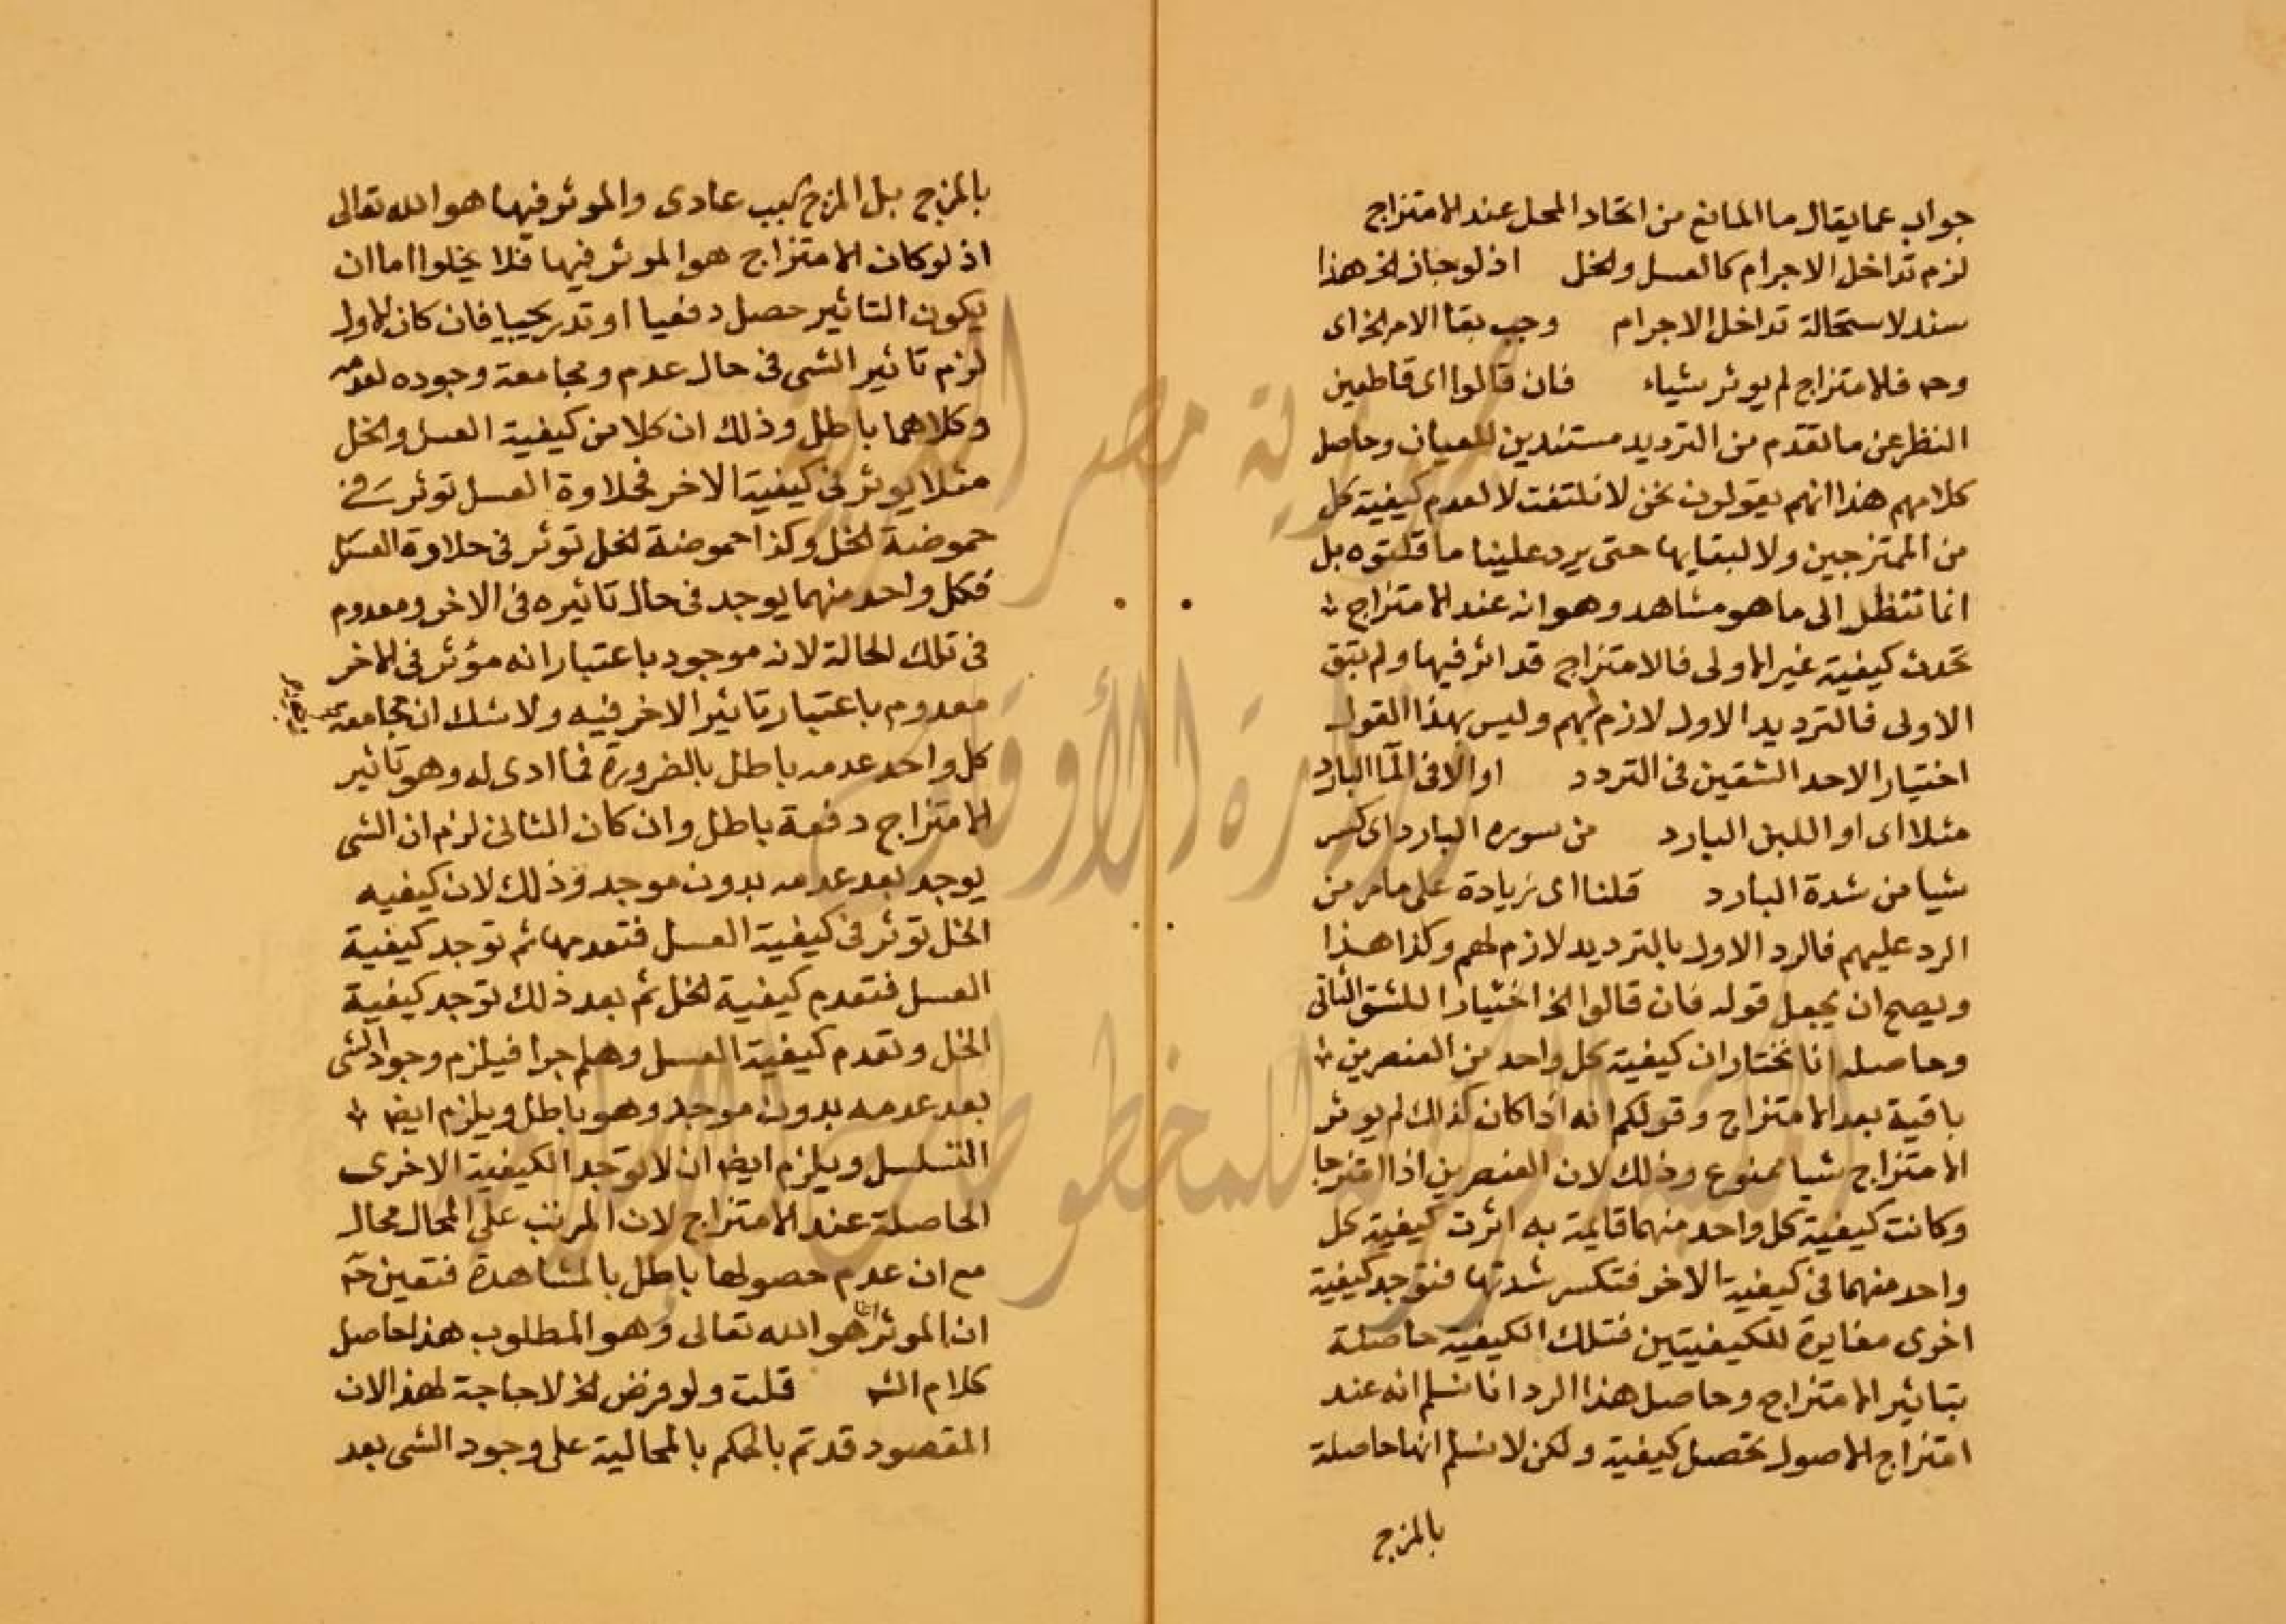 جواب عما يقال ما المانع من اتحاد المحل عند الامتزاج
لزم تداخل الاجرام كالعسل والخل اذ لو جاز الخ هذا
سند لاستحالة تداخل الاجرام وجب بقا الامر الخ اى
وح فالامتزاج لم يوثر بشياء فان قالوا اى قاطعين
النظر عن ما تقدم من الترديد مستندين للعيان وحاصل
كلامهم هذا انهم يقولون نحن لا نلتفت لا لعدم كيفية كل
من الممتزجين ولا لبقايها حتى يرد علينا ما قلتوه بل
انما ننظر الى ما هو مشاهد وهو انه عند الامتزاج
تحدث كيفية غير الاولى فالامتزاج قد اثر فيها ولم تبق
الاولى فالترديد الاول لازم لهم وليس بهذا القول
اختيار الاحد الشقين فى التردد او الافى الما البارد
مثلا اى او اللبن البارد من سورة البارد اى كسر
شيا من شدة البارد قلنا اى زيادة على ما مر من
الرد عليهم فالرد الاول بالترديد لازم لهم وكذا هذا
ويصح ان يجعل قوله فان قالوا الخ اختيارا للشق الثانى
وحاصله انا نختار ان كيفية كل واحد من العنصرين
باقية بعد الامتزاج وقولكم انه اذا كان كذالك لم يوثر
الامتزاج شيا ممنوع وذلك لان العنصرين اذا امتزجا
وكانت كيفية كل واحد منهما قايمة به اثرت كيفية كل
واحد منهما فى كيفية الاخر فتكسر شدتها فتوجد كيفية
اخرى مغايرة للكيفيتين فتلك الكيفية حاصلة
بتاثير الامتزاج وحاصل هذا الرد انا نسلم انه عند
امتزاج الاصول تحصل كيفية ولكن لا نسلم انها حاصلة
بالمزج
بالمزج بل المزج سبب عادى والموثر فيها هو الله تعالى
اذ لو كان الامتزاج هو الموثر فيها فلا يخلوا اما ان
يكون التاثير حصل دفعيا او تدريجيا فان كان الاول
لزم تاثير الشى فى حال عدم ومجامعة وجوده لعدمه
وكلاهما باطل وذلك ان كلا من كيفية العسل والخل
مثلا يوثر فى كيفية الاخر فحلاوة العسل توثر فى
حموضة الخل وكذا حموضة الخل توثر فى حلاوة العسل
فكل واحد منهما يوجد فى حال تاثيره فى الاخر ومعدوم
فى تلك الحالة لانه موجود باعتبار انه مؤثر فى الاخر
معدوم باعتبار تاثير الاخر فيه ولا شك ان مجامعة
كل واحد عدمه باطل بالضرورة فما ادى له وهو تاثير
الامتزاج دفعة باطل وان كان الثانى لزم ان الشى
يوجد بعد عدمه بدون موجد وذلك لان كيفيه
الخل توثر فى كيفية العسل فتعدمها ثم توجد كيفية
العسل فتعدم كيفية الخل ثم بعد ذلك توجد كيفية
الخل وتعدم كيفية العسل وهلم جرا فيلزم وجود الشى
بعد عدمه بدون موجد وهو باطل ويلزم ايضا
التسلسل ويلزم ايضا ان لا توجد الكيفية الاخرى
الحاصلة عند الامتزاج لان المرتب على المحال محال
مع ان عدم حصولها باطل بالمشاهدة فتعين ح
ان الموثر انما هو الله تعالى وهو المطلوب هذا حاصل
كلام الش قلت ولو فرض الخ لا حاجة لهذا لان
المقصود قد تم بالحكم بالمحالية على وجود الشى بعد